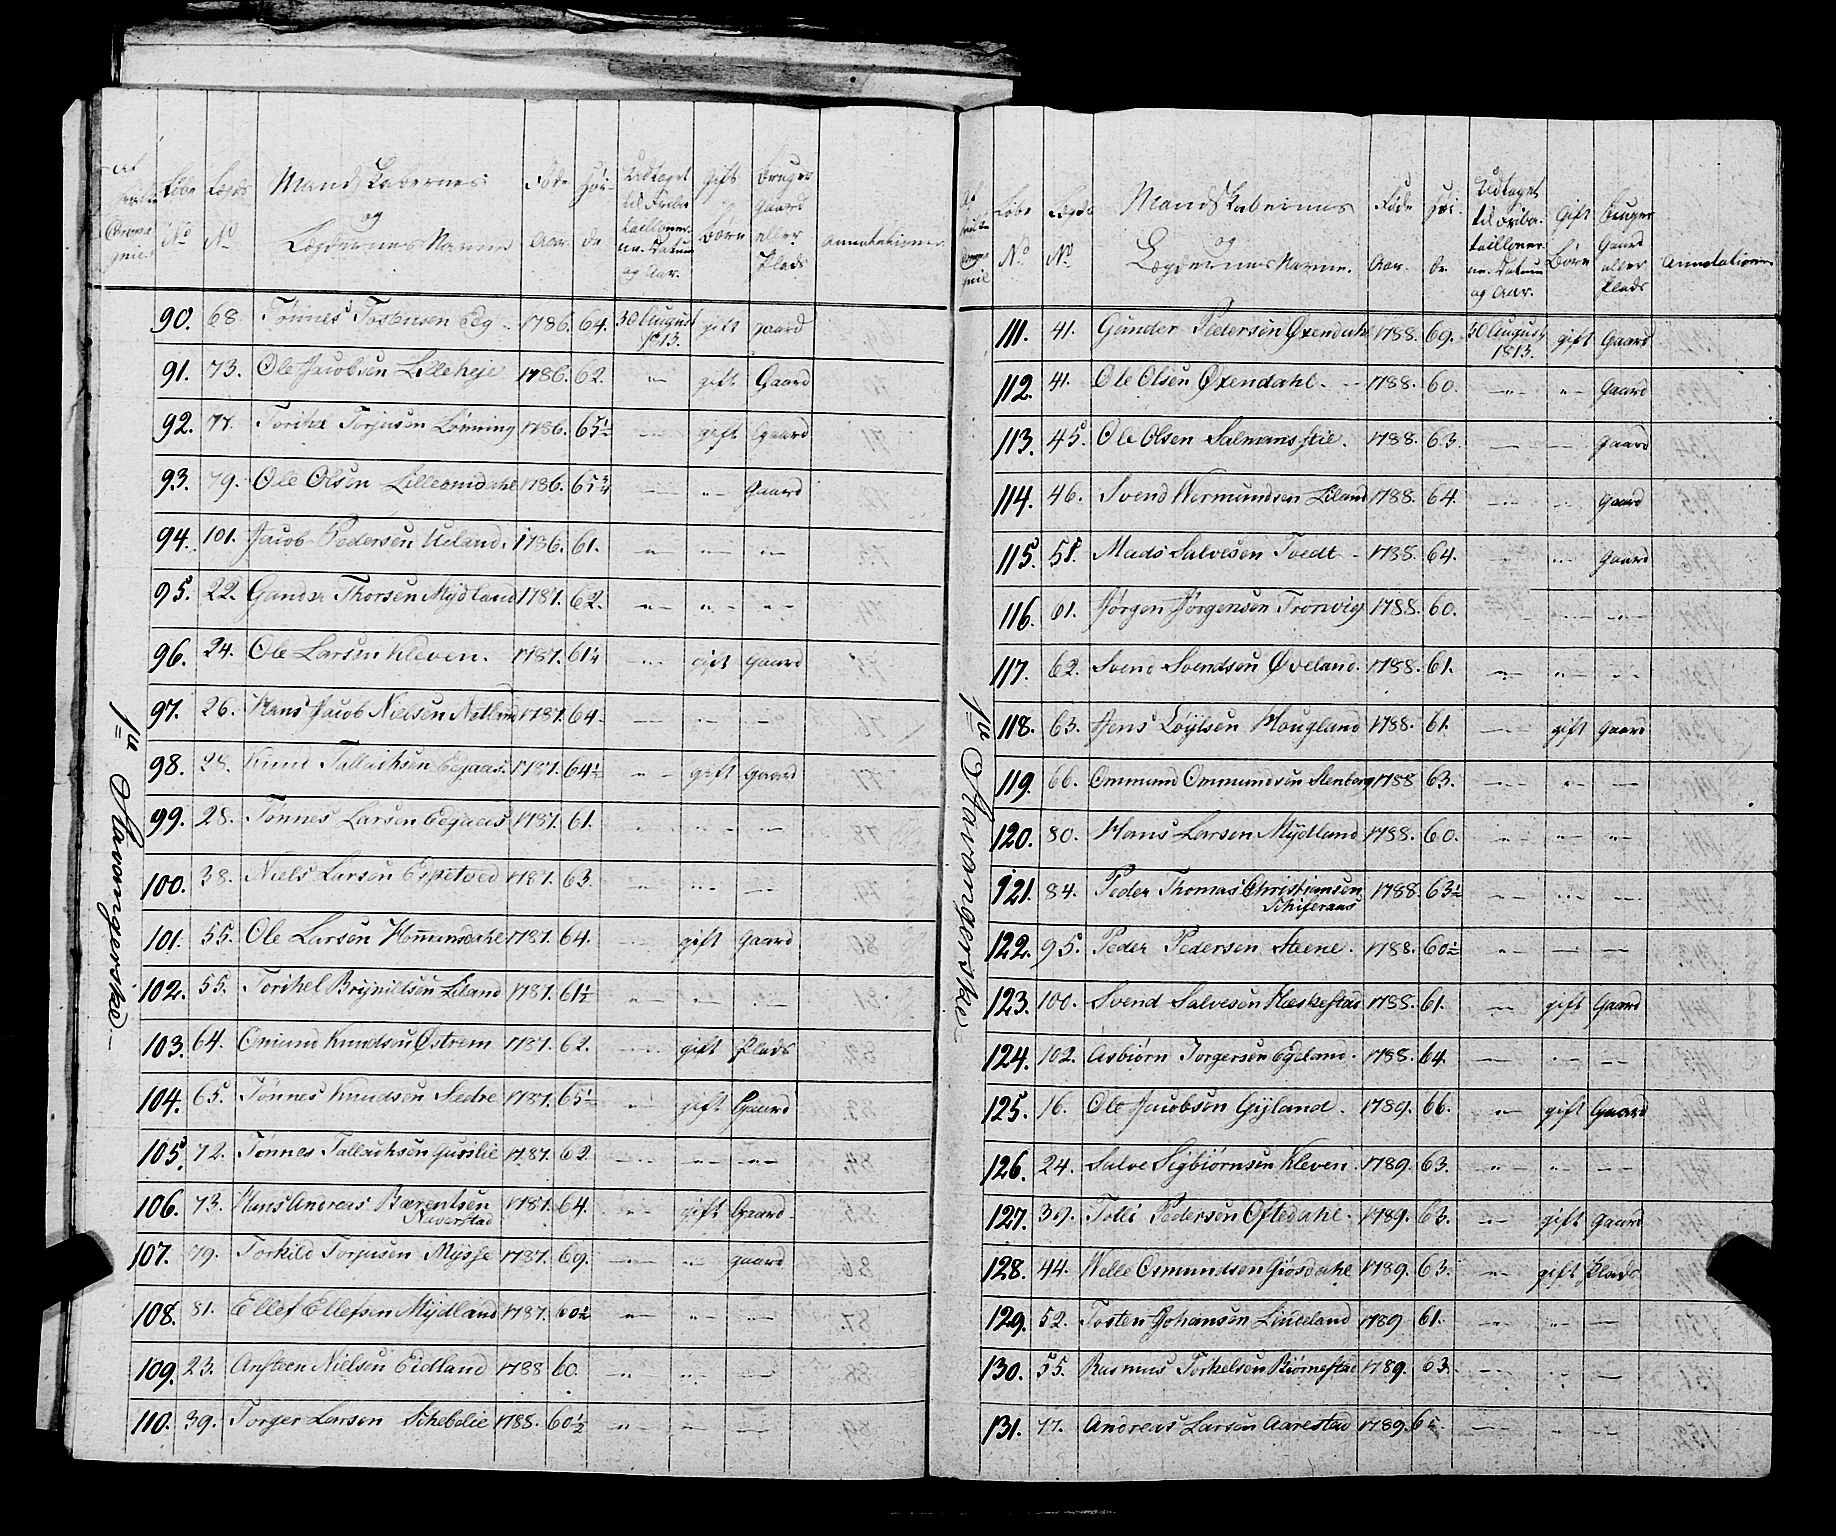 Løbe Lægds Mandskabernes Føde Høi- Udtaget gift Bruger
og til Friba Gaard
No No Lægdernes Navne Aar. de taillonerne. Datum og Aar. Børn eller Plads Annotationer
1ste Stavangerske
90. 68. Tønnes Tostensen Eeg 1786. 64. 30 August 1813. gift gaard
91. 73. Ole Jacobsen Lilleheje 1786. 62. -"- gift Gaard
92. 77. Torkel Torjusen Lønning 1786. 65½ -"- gift Gaard
93. 79. Ole Olsen Lilleomdahl 1786. 65¾ -"- -"- Gaard
94. 101. Jacob Pedersen Ueland. 1786. 61. -"- -"- -"-
95. 22. Gunder Thorsen Mydland 1787. 62. -"- -"- -"-
96. 24. Ole Larsen Kleven. 1787. 61¼ -"- gift Gaard
97. 26. Hans Jacob Nielsen Netland 1787. 64 -"- -"- -"-
98. 28. Knud Tallachsen Eegaas. 1787. 64½ -"- gift Gaard
99. 28. Tønnes Larsen Eegaas 1787. 61. -"- -"- -"-
100. 38. Niels Larsen Espetved 1787. 63. -"- -"- -"-
101. 55. Ole Larsen Hommansdahl 1787. 64. -"- gift Gaard
102. 55. Torkel Brynildsen Liland 1787. 61½ -"- -"- -"-
103. 64. Omund Knudsen Østrem 1787. 62. -"- gift Plads
104. 65. Tønnes Knudsen Sædre 1787. 65½ -"- gift Gaard
105. 72. Tønnes Tallachsen Guuslie 1787. 62. -"- -"- -"-
106. 73. Hans Andreas Bærentsen Naverstad 1787. 64. -"- gift Gaard
107. 79. Torkild Torjusen Mysse 1787. 69. -"- -"- gaard
108. 81. Ellef Ellefsen Mydland 1787. 60½ -"- -"- -"-
109. 23. Ansteen Nielsen Eidland 1788 60. -"- -"- -"-
110. 39. Torger Larsen Skebelie 1788. 60½ -"- -"- -"-
Løbe Lægds Mandskabernes Føde Høi- Udtaget Gift Bruger
og til Friba- Gaard
No No Lægdernes Navne. Aar. de taillonerne. Datum og Aar. Børn eller Plads Annotationer
1ste Stavangerske
111. 41. Gunder Pedersen Øxendahl 1788. 69. 30 August 1813. gift Gaard
112. 41. Ole Olsen Øxendahl. 1788. 60. -"- -"- Gaard
113. 45. Ole Olsen Salmanslie. 1788. 63. -"- -"- Gaard
114. 46. Svend Wermundsen Liland 1788. 64. -"- -"- Gaard
115. 51. Mads Salvesen Tvedt 1788. 64. -"- -"- Gaard
116. 61. Jørgen Jørgensen Tronvig 1788. 60. -"- -"- -"-
117. 62. Svend Svendsen Øveland. 1788. 61. -"- -"- -"-
118. 63. Jens Løylsen Hougland 1788. 61. -"- gift Gaard
119. 66. Ommund Ommundsen Stenberg 1788 63. -"- -"- -"-
120. 80. Hans Larsen Mydland 1788. 60. -"- -"- -"-
121. 84. Peder Thomas Christiansen Schiferaas 1788. 63½ -"- -"- -"-
122. 95. Peder Pedersen Steene. 1788. 60½ -"- -"- -"-
123. 100. Svend Salvesen Hæskestad 1788. 61. -"- gift Gaard
124. 102. Asbiørn Torgersen Egeland. 1788. 64. -"- -"- -"-
125. 16. Ole Jacobsen Gyland. 1789. 66. -"- gift Gaard
126. 24. Salve Sigbiørnsen Kleven. 1789. 63. -"- -"- -"-
127. 39. Tolli Pedersen Oftedahl. 1789. 63. -"- gift Gaard
128. 44. Welle Osmundsen Giøsdahl 1789. 63. -"- gift Plads
129. 52. Tosten Johansen Lindeland 1789 61. -"- -"- -"-
130. 55. Rasmus Torkelsen Biørnestad 1789. 63. -"- -"- -"-
131. 77. Andreas Larsen Aarestad 1789. 65 -"- -"- -"-